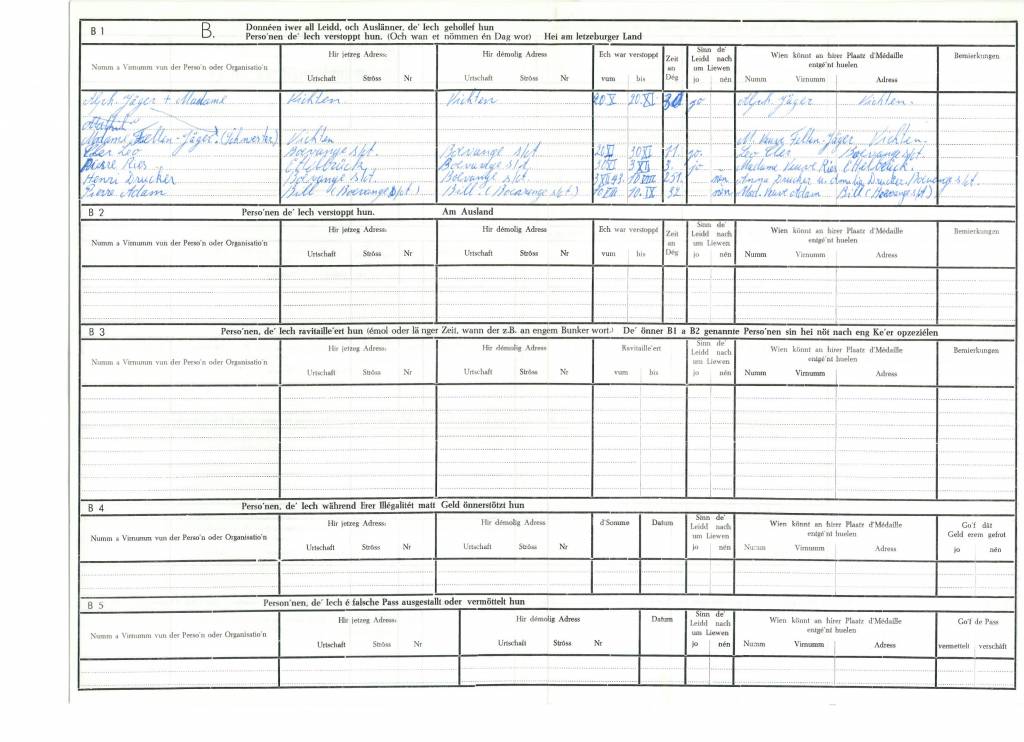 B 1 B. Donnéen iwer all Leidd, och Auslänner, de' Iech gehollef hun
Perso'nen de' Iech verstoppt hun. (Och wan et nömmen én Dag wor) Hei am letzeburger Land
Numm a Virnumm vun der Perso'n oder Organisatio'n Hir jetzeg Adress: Hir démolig Adress: Ech war verstoppt Zeit an Dég Sinn de' Leidd nach um Liewen Wien könnt an hirer Plaatz d'Médaille entgé'nt huelen Bemierkungen
Urtschaft Ströss Nr Urtschaft Ströss Nr vum bis jo nén Numm Virnumm Adress
Alph. Jäger + Madame Vichten Vichten 20 X 20. XI 30 jo Alph. Jäger Vichten.
Madame Fellen-Jäger. (Schwester) Vichten M. Veuve Fellen-Jäger Vichten.
Eler Leo Boevange s/t. Boevange s/t 30 XI 11 jo Leo Eler Boevange s/t.
Pierre Ries Ettelbrück Boevange s/t 3 XII 3. jo Madame Veuve Ries Ettelbrück.
Henri Drucker Boevange s/t. Boevange s/t 251. nén Anna Drucker Amalie Drucker, Boevange s/t.
Pierre Adam Bill (Boevange s/t.) Bill (Boevange s/t) 10 VIII 10. IX 32. nén Mad. Veuve Adam Bill (Boevange s/t).
B 2 Perso'nen de' Iech verstoppt hun. Am Ausland
Numm a Virnumm vun der Perso'n oder Organisatio'n Hir jetzeg Adress: Hir démolig Adress Ech war verstoppt Zeit an Dég Sinn de' Leidd nach um Liewen Wien könnt an hirer Plaatz d'Médaille entgé'nt huelen Bemierkungen
Urtschaft Ströss Nr Urtschaft Ströss Nr vum bis jo nén Numm Virnumm Adress
B 3 Perso'nen, de' Iech ravitaille'ert hun (émol oder länger Zeit, wann der z.B. an engem Bunker wort.) De' önner B1 a B2 genannte Perso'nen sin hei nöt nach eng Ke'er opzeziélen
Numm a Virnumm vun der Perso'n oder Organisatio'n Hir jetzeg Adress: Hir démolig Adress Ravitaille'ert Sinn de' Leidd nach um Liewen Wien könnt an hirer Plaatz d'Médaille entgé'nt huelen Bemierkungen
Urtschaft Ströss Nr Urtschaft Ströss Nr vum bis jo nén Numm Virnumm Adress
B 4 Perso'nen, de' Iech während Erer Illégalitét matt Geld önnerstötzt hun
Numm a Virnumm vun der Perso'n oder Organisatio'n Hir jetzeg Adress: Hir démolig Adress d'Somme Datum Sinn de' Leidd nach um Liewen Wien könnt an hirer Plaatz d'Médaille entgé'nt huelen Go'f dät Geld erem gefrot
Urtschaft Ströss Nr Urtschaft Ströss Nr jo nén Numm Virnumm Adress jo nén
B 5 Person'nen, de' Iech é falsche Pass ausgestallt oder vermöttelt hun
Numm a Virnumm vun der Perso'n oder Organisatio'n Hir jetzeg Adress: Hir démolig Adress Datum Sinn de' Leidd nach um Liewen Wien könnt an hirer Plaatz d'Médaille entgé'nt huelen Go'f de Pass
Urtschaft Ströss Nr Urtschaft Ströss Nr jo nén Numm Virnumm Adress vermettelt verschäft